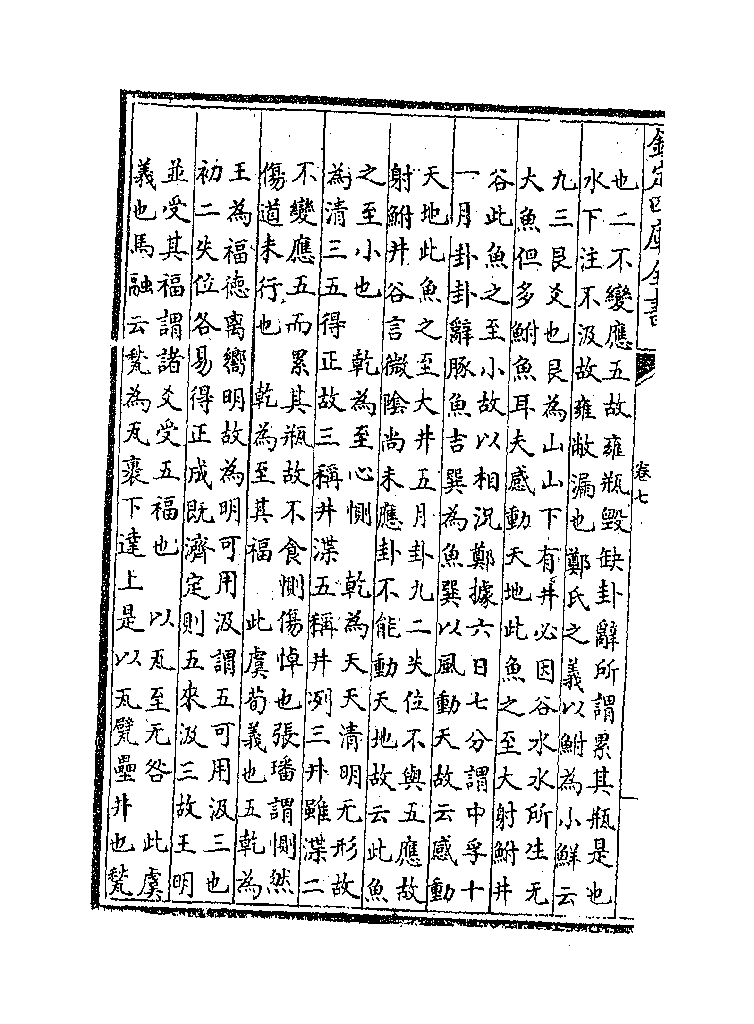 欽定四庫全書
卷七
也二不變應五故雍瓶毀缺卦辭所謂累其瓶是也
水下注不汲故雍敝漏也鄭氏之義以鮒為小鮮云
九三艮爻也艮為山山下有井必因谷水水所生无
大魚但多鮒魚耳夫感動天地此魚之至大射鮒井
谷此魚之至小故以相況鄭據六日七分謂中孚十
一月卦卦辭豚魚吉巽為魚巽以風動天故云感動
天地此魚之至大井五月卦九二失位不與五應故
射鮒井谷言微陰尚未應卦不能動天地故云此魚
之至小也　乾為至心惻　乾為天天清明无形故
為清三五得正故三稱井渫五稱井冽三井雖渫二
不變應五而累其瓶故不食惻傷悼也張璠謂惻然
傷道未行也　乾為至其福　此虞荀義也五乾為
王為福德離嚮明故為明可用汲謂五可用汲三也
初二失位各易得正成既濟定則五來汲三故王明
並受其福謂諸爻受五福也　以瓦至无咎　此虞
義也馬融云甃為瓦裹下達上是以瓦甓壘井也甃